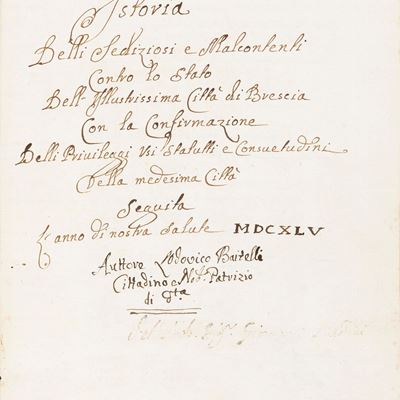 Istoria
Delli Sediziosi e Malcontenti
Contro lo Stato
Dell' Illustrissima Città di Brescia
Con la Confirmazione
Delli Privileggi Usi Statutti e Consuetudini
Della medesima Città
Seguita
L'anno di nostra salute MDCXLV
Auttore Lodovico
Cittadino e Nob. Patrizio
di